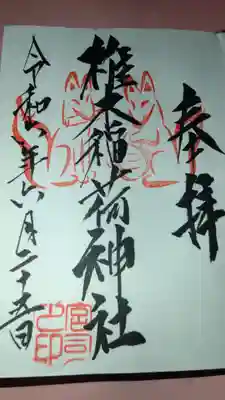 奉拝
椎木稲荷神社
令和年六月二十五日
宮司
之印